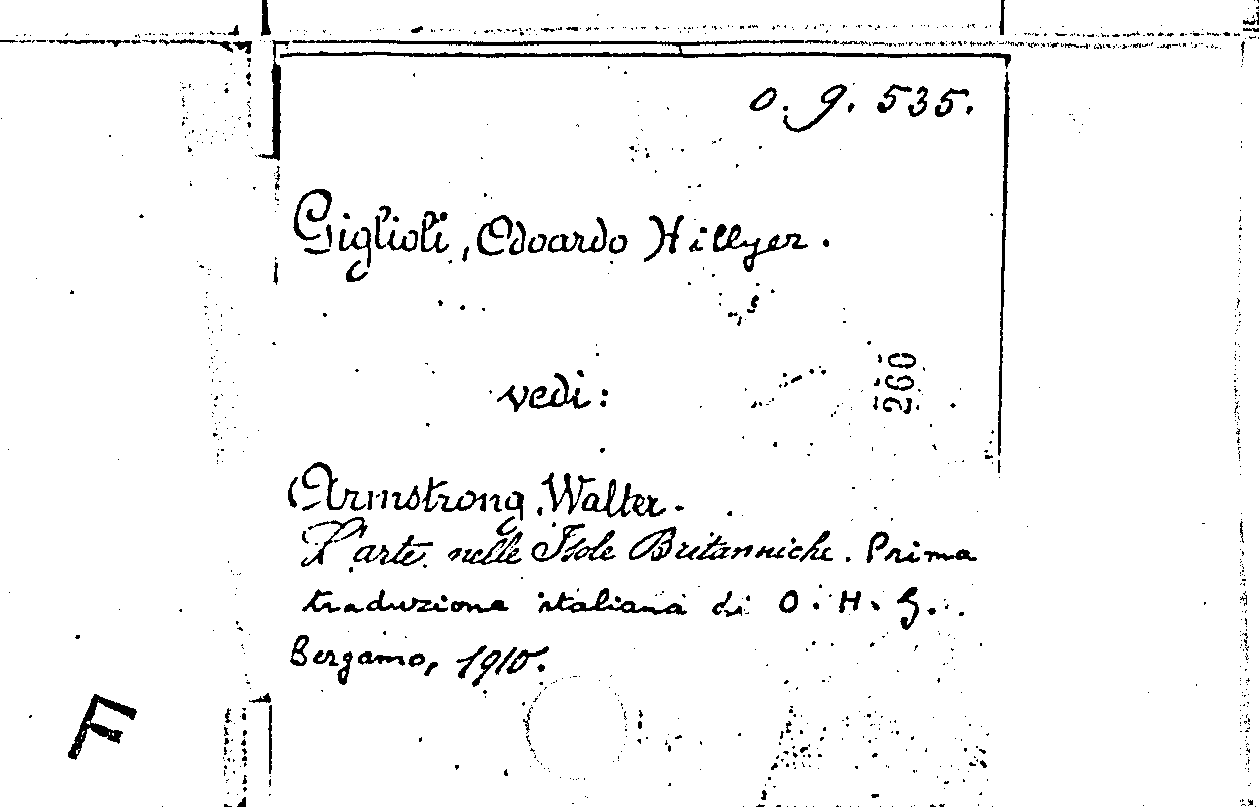 O. g. 535.
Giglioli, Odoardo Hillyer.
vedi:
260
Armstrong, Walter.
L'arte nelle Isole Britanniche. Prima
traduzione italiana di O. H. G.
Bergamo, 1910.
F